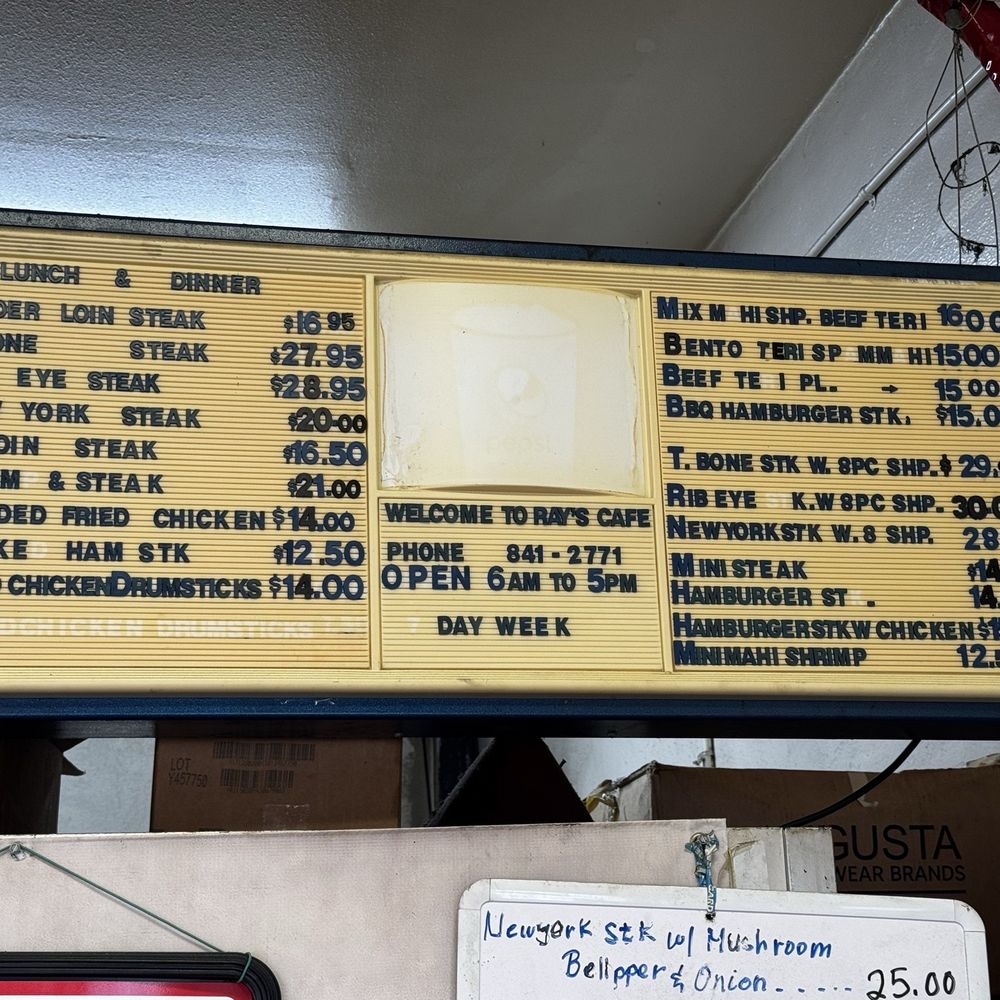 LUNCH & DINNER
DER LOIN STEAK $16 95
ONE STEAK $27.95
EYE STEAK $28.95
YORK STEAK $20-00
OIN STEAK $16.50
M & STEAK $21.00
DED FRIED CHICKEN $14.00
KE HAM STK $12.50
CHICKEN DRUMSTICKS $14.00
CHICKEN DRUMSTICKS
pepsi
WELCOME TO RAY'S CAFE
PHONE 841-2771
OPEN 6AM TO 5PM
7 DAY WEEK
MIX M HI SHP. BEEF TERI 160
BENTO TERI SP MM HI 1500
BEEF TE I PL. → 15 00
BBQ HAMBURGER STK. $15.0
T. BONE STK W. 8PC SHP. $ 29.
RIB EYE K.W 8PC SHP. 30
NEWYORK STK W. 8 SHP. 28
MINI STEAK $14
HAMBURGER ST . 14.
HAMBURGER STK W CHICKEN $1
MINI MAHI SHRIMP 12.
LOT
Y457750
GUSTA
WEAR BRANDS
Newyork stk w/ Mushroom
Bellpper & Onion . . . . . . 25.00